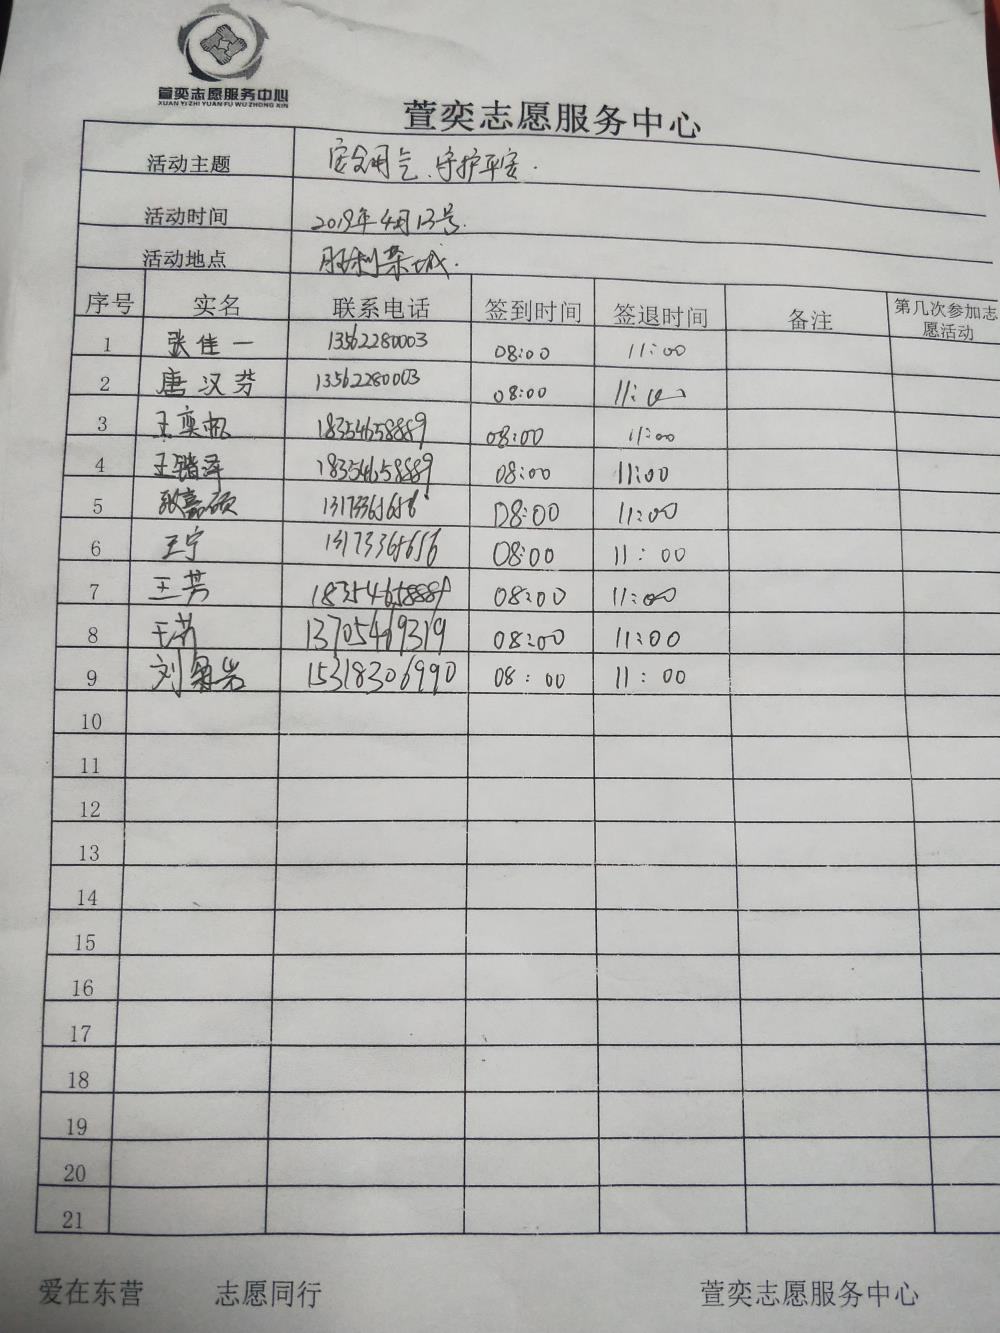 萱奕志愿服务中心
XUAN YI ZHI YUAN FU WU ZHONG XIN
萱奕志愿服务中心
活动主题 安全用气、守护平安.
活动时间 2019年4月13号.
活动地点 胜利荣城.
序号 实名 联系电话 签到时间 签退时间 备注 第几次参加志愿活动
1 张佳一 13562280003 08:00 11:00
2 唐汉芬 13562280003 08:00 11:00
3 王奕帆 18354658889 08:00 11:00
4 王锴泽 18354658889 08:00 11:00
5 张嘉硕 13173365656 08:00 11:00
6 王宁 13173365656 08:00 11:00
7 王芳 18354658889 08:00 11:00
8 王芳 13705469319 08:00 11:00
9 刘岩 15318306990 08:00 11:00
10
11
12
13
14
15
16
17
18
19
20
21
爱在东营 志愿同行 萱奕志愿服务中心